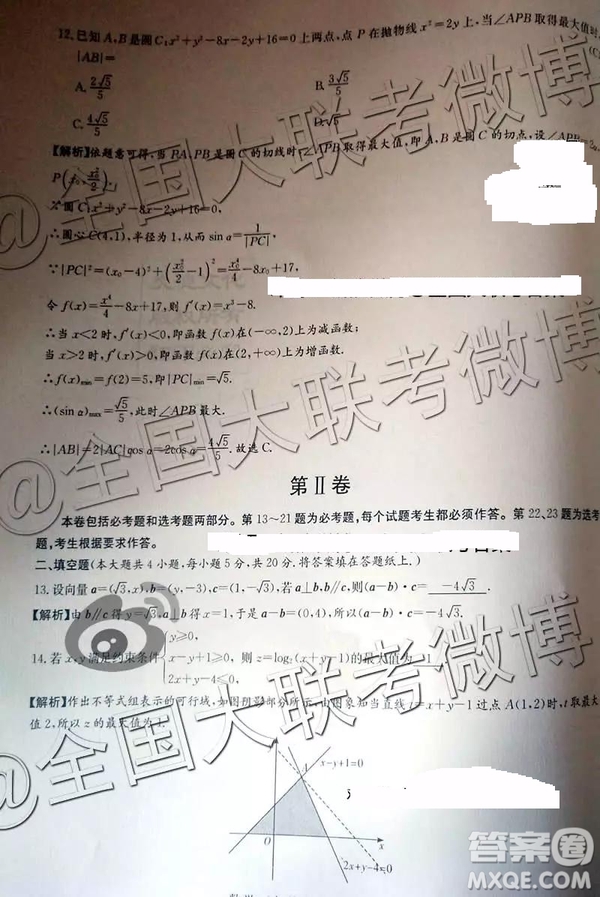 12.已知A,B是圆C:x²+y²-8x-2y+16=0上两点,点P在抛物线x²=2y上,当∠APB取得最大值时,
|AB|= (C)
A. 2√5/5 B. 3√5/5
C. 4√5/5 D.
【解析】依题意可得,当PA,PB是圆C的切线时,∠APB取得最大值,即A,B是圆C的切点,设∠APB=2α,
P(x₀,x₀²/2).
∵圆C:x²+y²-8x-2y+16=0,
∴圆心C(4,1),半径为1,从而sin α=1/|PC|,
∵|PC|²=(x₀-4)²+(x₀²/2-1)²=x₀⁴/4-8x₀+17,
令f(x)=x⁴/4-8x+17,则f′(x)=x³-8.
∴当x<2时,f′(x)<0,即函数f(x)在(-∞,2)上为减函数;
当x>2时,f′(x)>0,即函数f(x)在(2,+∞)上为增函数.
∴f(x)min=f(2)=5,即|PC|min=√5.
∴(sin α)max=√5/5,此时∠APB最大.
∴|AB|=2|AC|cos α=2cos α=4√5/5.故选C.
第Ⅱ卷
本卷包括必考题和选考题两部分。第13~21题为必考题,每个试题考生都必须作答。第22、23题为选考
题,考生根据要求作答。
二、填空题(本大题共4小题,每小题5分,共20分.将答案填在答题纸上.)
13.设向量a=(√3,x),b=(y,-3),c=(1,-√3),若a⊥b,b∥c,则(a-b)·c= -4√3 .
【解析】由b∥c得y=√3,a⊥b得x=1,于是a-b=(0,4),所以(a-b)·c=-4√3.
14.若x,y满足约束条件{y≥0, x-y+1≥0, 2x+y-4≤0, 则z=log₂(x+y-1)的最大值为 1 .
【解析】作出不等式组表示的可行域,如图阴影部分所示,由图象知当直线t=x+y-1过点A(1,2)时,t取最大
值2,所以z的最大值为1.
x-y+1=0
A
O
x
2x+y-4=0
@全国大联考微博
@全国大联考微博
@全国大联考微博
答案卷
MXQE.COM